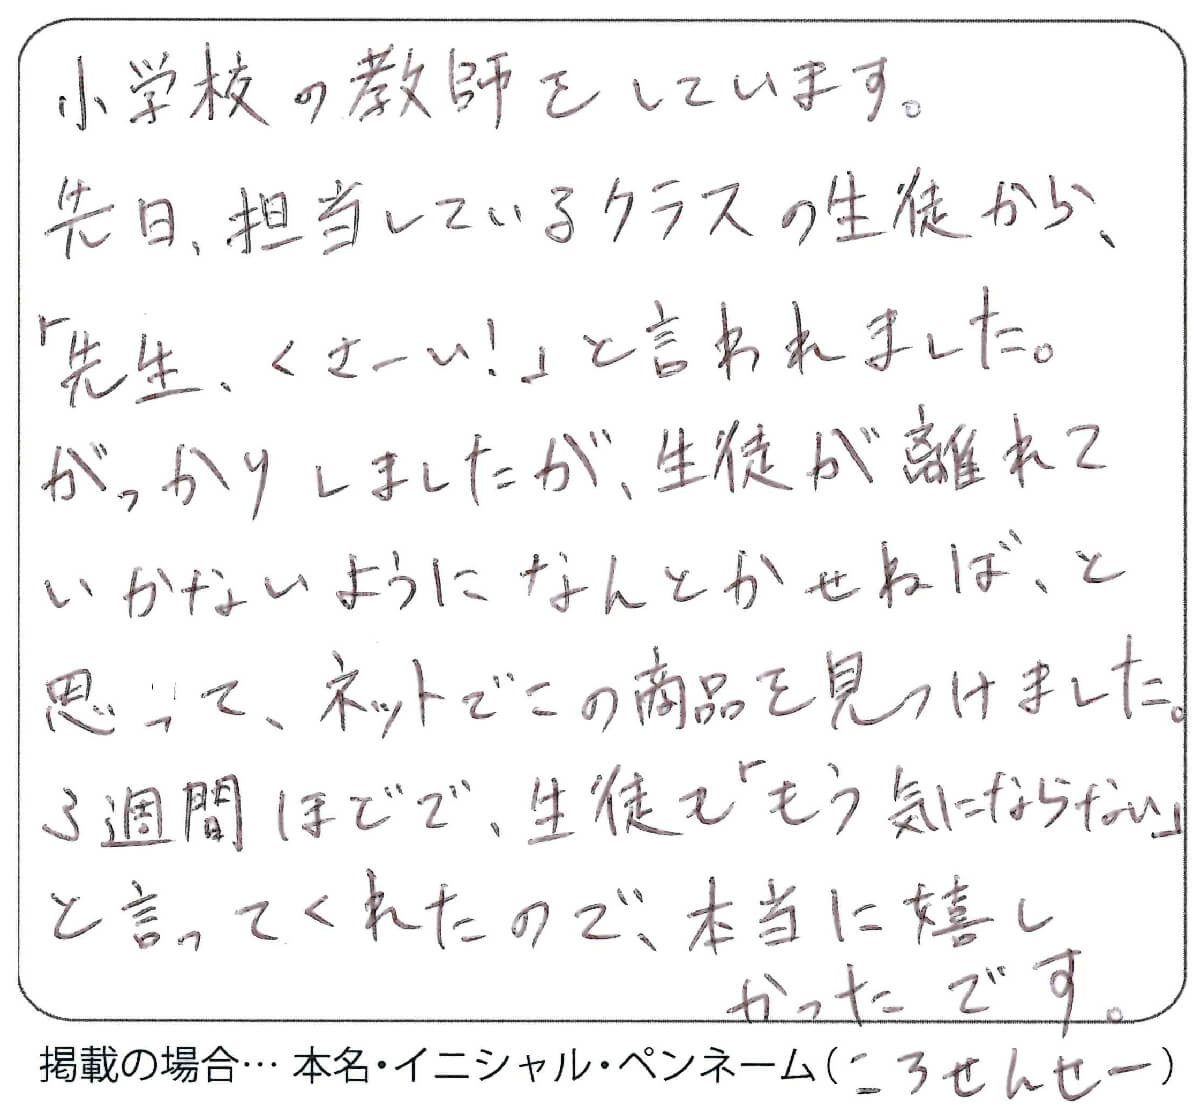 小学校の教師をしています。
先日、担当しているクラスの生徒から、
「先生、くさーい!」と言われました。
がっかりしましたが、生徒が離れて
いかないようになんとかせねば、と
思って、ネットでこの商品を見つけました。
3週間ほどで、生徒も「もう気にならない」
と言ってくれたので、本当に嬉し
かったです。
掲載の場合… 本名・イニシャル・ペンネーム(ころせんせー)